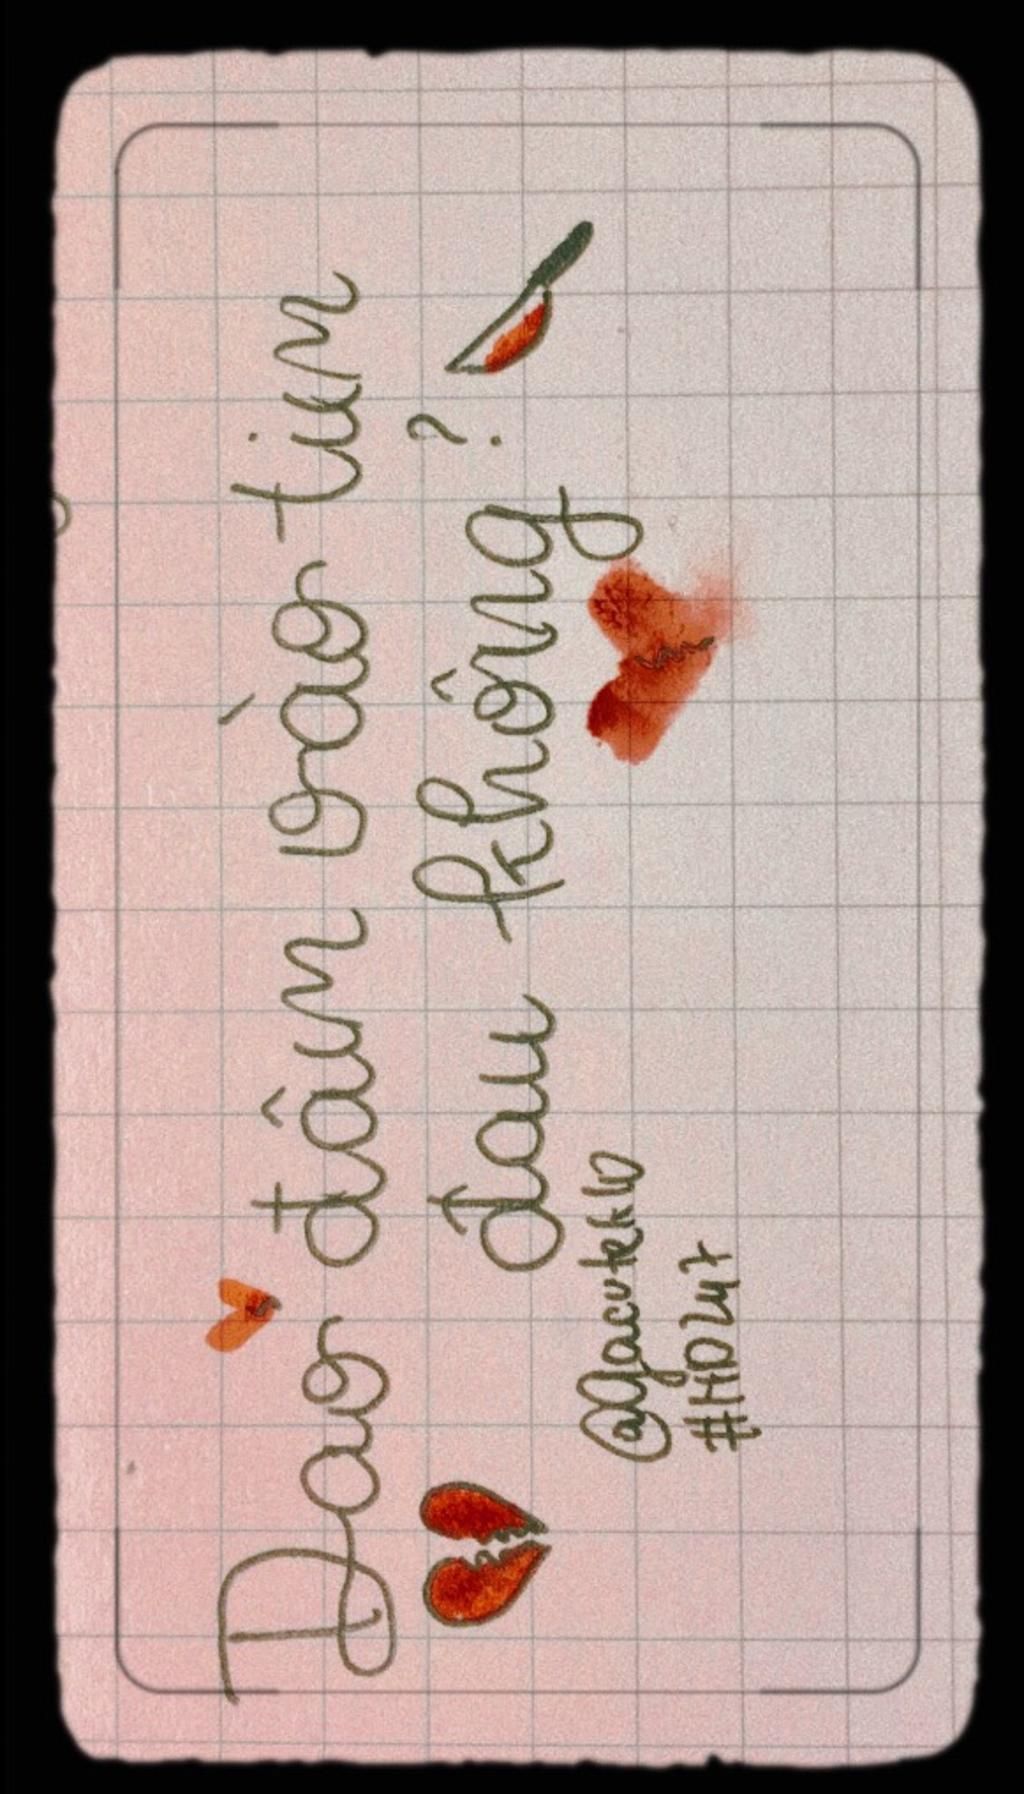 Dao đâm vào tim
đau không?
@gacutekld
#HD247